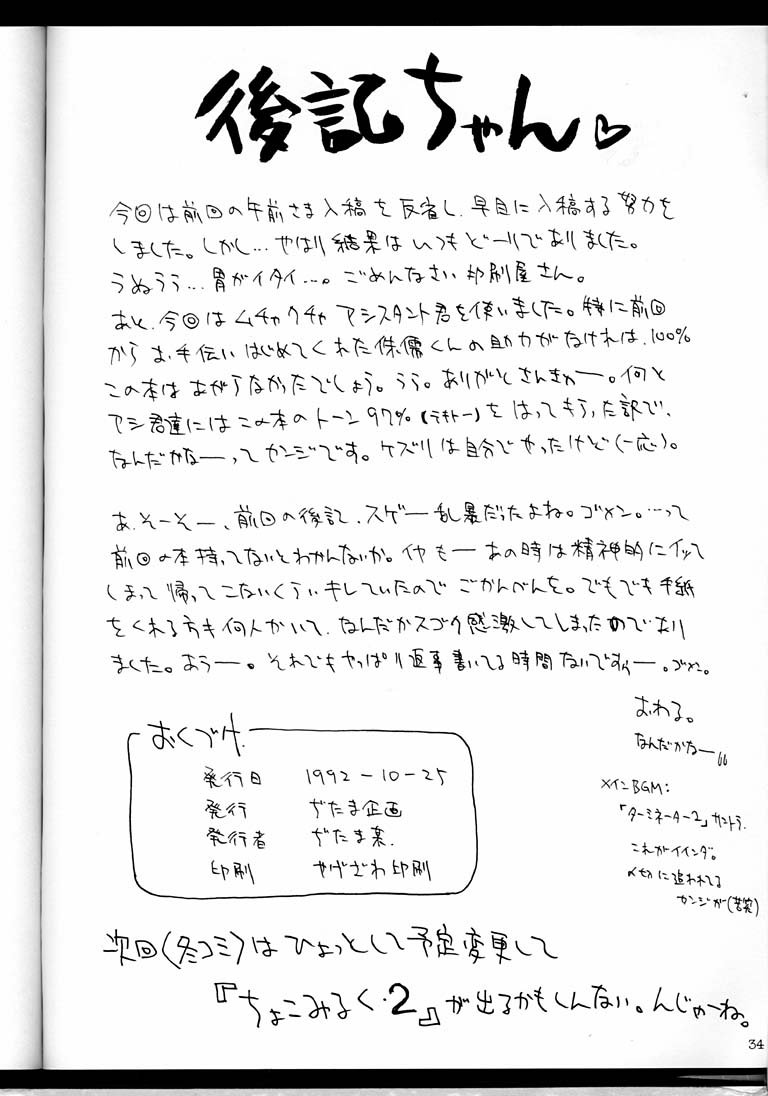 後記ちゃん♡
今回は前回の午前さま入稿を反省し、早目に入稿する努力を
しました。しかし…やはり結果はいつもどーりでありました。
うぬうう…胃がイタイ…。ごめんなさい印刷屋さん。
あと、今回はムチャクチャアシスタント君を使いました。特に前回
からお手伝いはじめてくれた侏儒くんの助力がなければ、100%
この本はあがらなかったでしょう。うう。ありがとさんきゅー。何と
アシ君達にはこの本のトーン97%(テキトー)をはってもらった訳で、
なんだかなーってカンジです。ケズリは自分でやったけど(一応)。
あ、そーそー、前回の後記、スゲー乱暴だったよね。ゴメン。…って
前回の本持ってないとわかんないか。イヤもーあの時は精神的にイッて
しまって帰ってこないくらいキレていたのでごかんべんを。でもでも手紙
をくれる方も何人かいて、なんだかスゴク感激してしまったのであり
ました。おうー。それでもやっぱり返事書いてる時間ないですぅー。ゴメン。
おわる。
なんだかなー
メインBGM:
「ターミネーター2」サントラ.
これがイインダ。
〆切に追われてる
カンジが(苦笑)
おくづけ
発行日 1992-10-25
発行 ぢたま企画
発行者 ぢたま某.
印刷 やげざわ印刷
次回(冬コミ)はひょっとして予定変更して
『ちょこみるく・2』が出るかもしんない。んじゃーね。
34